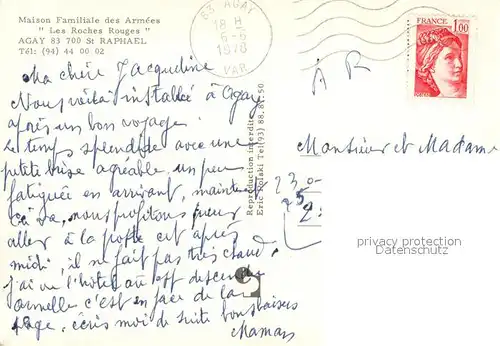 Maison Familiale des Armées
" Les Roches Rouges "
AGAY 83 700 St RAPHAEL
Tél: (94) 44 00 02
83 AGAY
18 H
6-6
1978
VAR
FRANCE
1,00
A R
Ma chère Jacqueline
Nous voilà installée à Agay
après un bon voyage.
Le temps splendide avec une
petite brise agréable, un peu
fatiguée en arrivant, maintenant
ça va, nous profitons pour
aller à la poste cet après
midi, il ne fait pas très chaud.
j'ai vu l'hôtel où est descendu
Armelle c'est en face de la
plage, écris moi de suite bons baisers
Maman
Monsieur et Madame
23,0
Reproduction interdite
Eric Tel(93) 88.81.50
privacy protection
Datenschutz